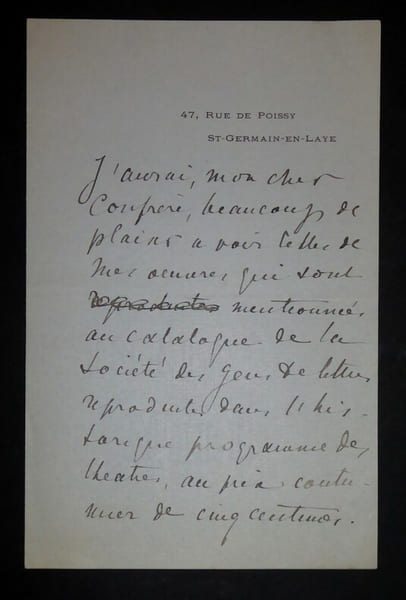 47, RUE DE POISSY
ST-GERMAIN-EN-LAYE
J'aurai, mon cher
Confrère, beaucoup de
plaisir a voir celles de
mes oeuvres qui sont
reproductes mentionnées
au catalogue de la
Société des gens de lettres
reproduites dans l'his-
torique programme des
theatres, au prix coutu-
mier de cinq centimes.